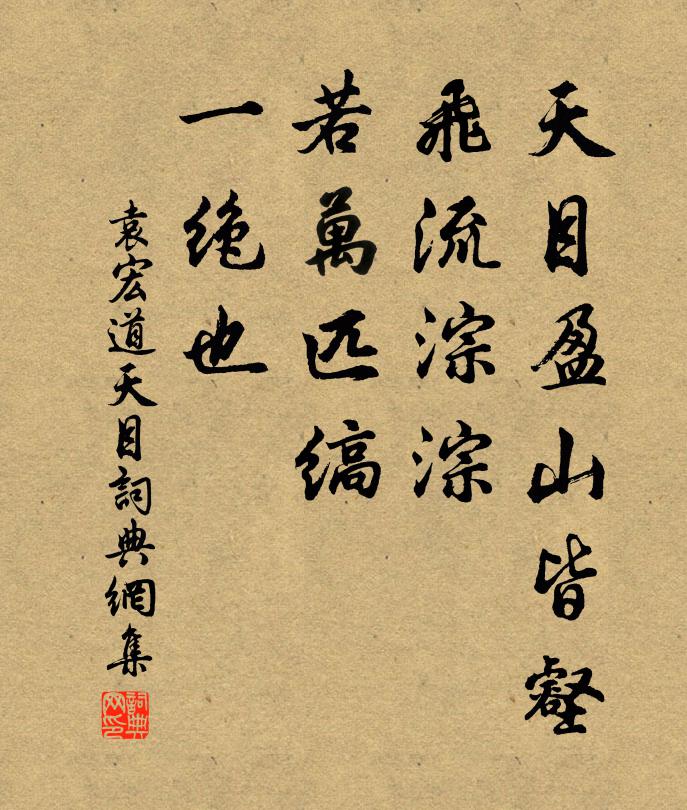 天目盈山皆壑
飛流淙淙
若萬匹縞
一絶也
袁宏道天目詞典網集
詞典网印